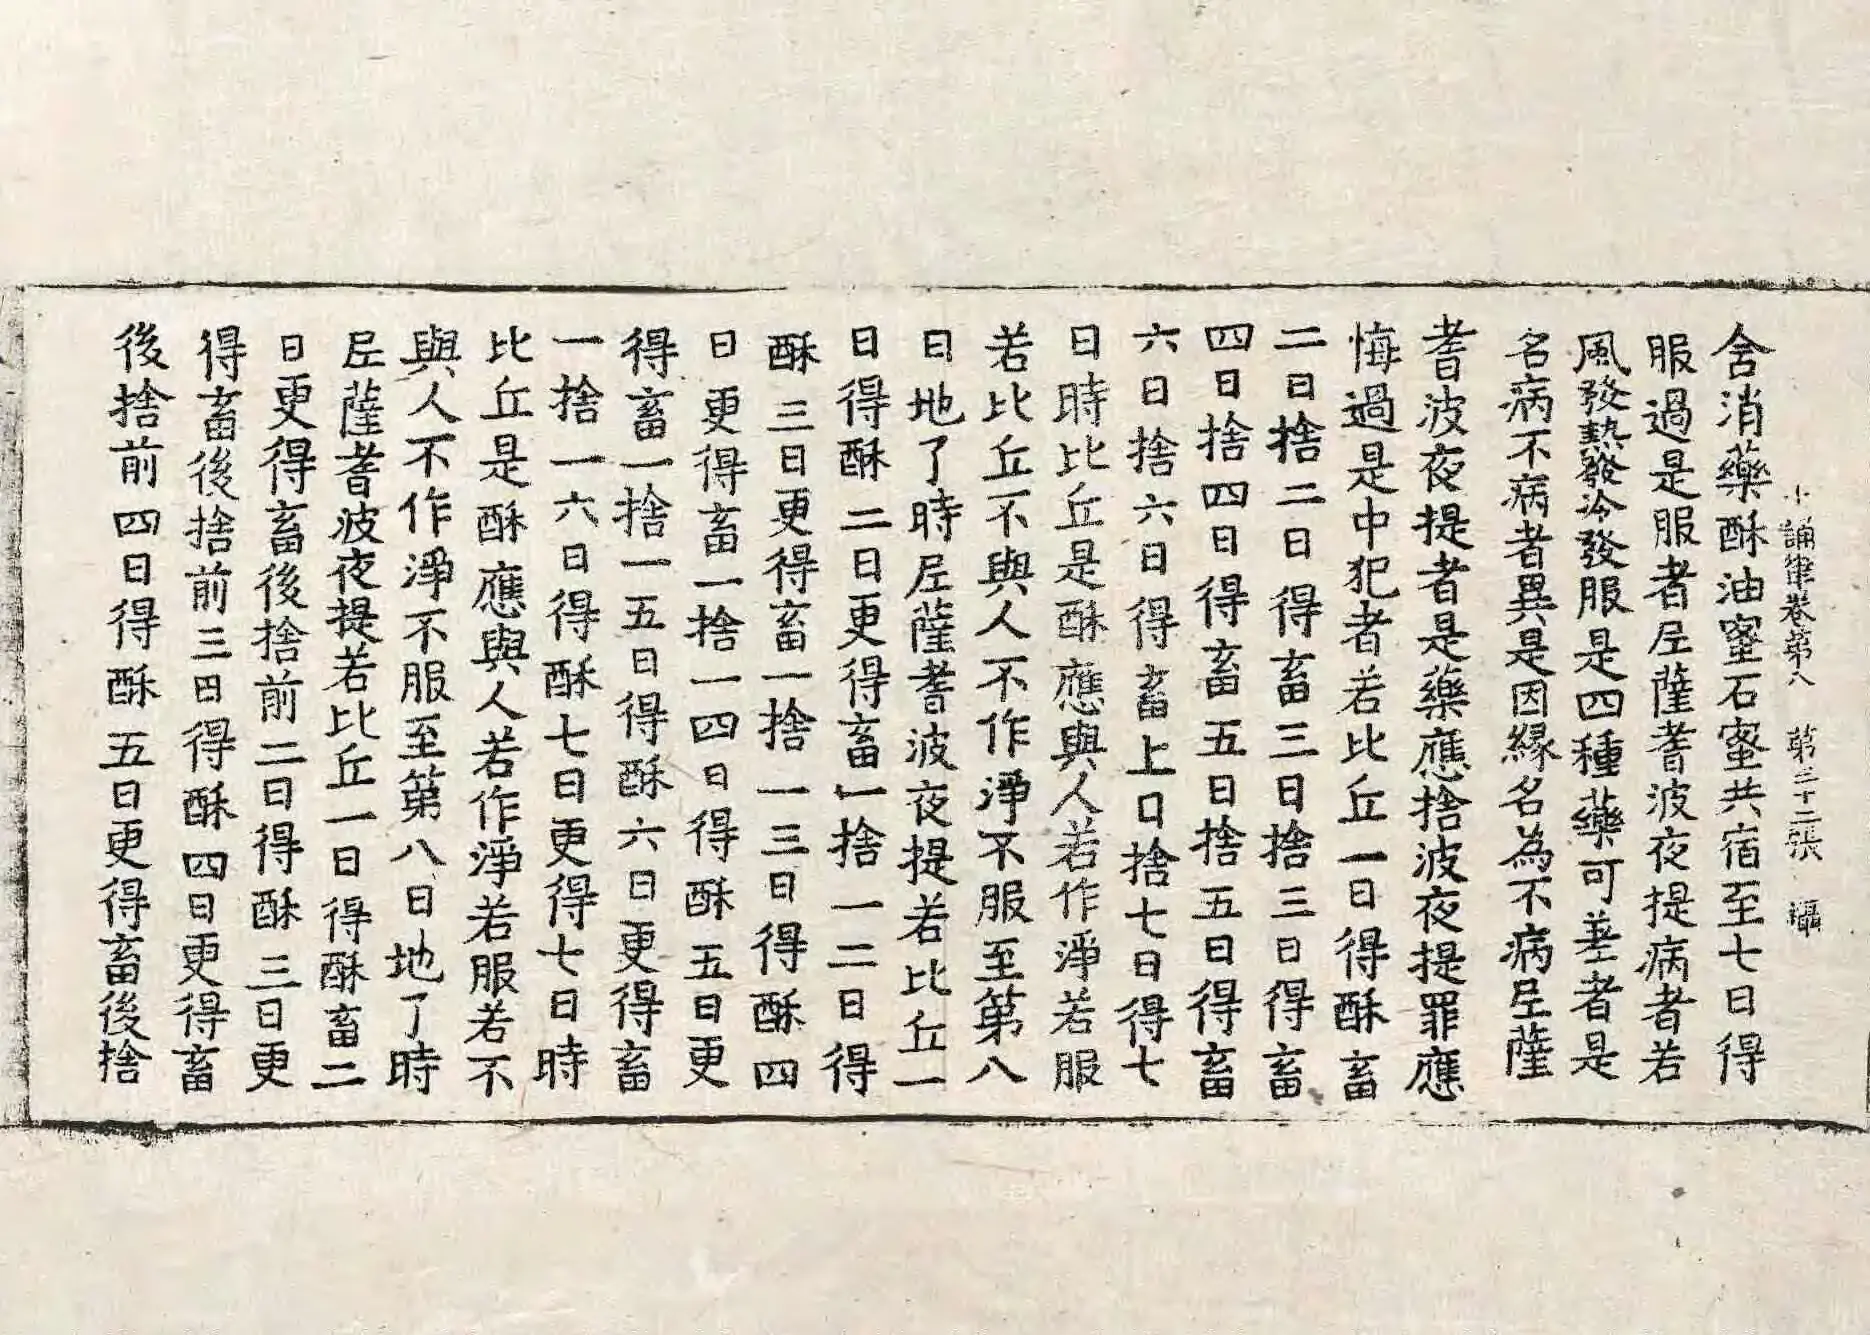 十誦律卷第八 第三十二張 攝
含消藥酥油蜜石蜜共宿至七日得
服過是服者尼薩耆波夜提病者若
風發熱發冷發服是四種藥可差者是
名病不病者異是因緣名為不病尼薩
耆波夜提者是藥應捨波夜提罪應
悔過是中犯者若比丘一日得酥畜
二日捨二日得畜三日捨三日得畜
四日捨四日得畜五日捨五日得畜
六日捨六日得畜上口捨七日得七
日時比丘是酥應與人若作淨若服
若比丘不與人不作淨不服至第八
日地了時尼薩耆波夜提若比丘一
日得酥二日更得畜一捨一二日得
酥三日更得畜一捨一三日得酥四
日更得畜一捨一四日得酥五日更
得畜一捨一五日得酥六日更得畜
一捨一六日得酥七日更得七日時
比丘是酥應與人若作淨若服若不
與人不作淨不服至第八日地了時
尼薩耆波夜提若比丘一日得酥畜二
日更得畜後捨前二日得酥三日更
得畜後捨前三日得酥四日更得畜
後捨前四日得酥五日更得畜後捨